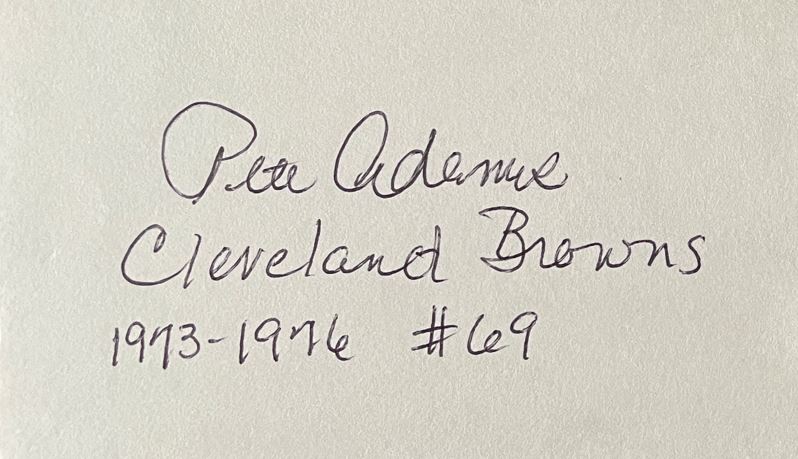 Pete Adams
Cleveland Browns
1973-1976 #69